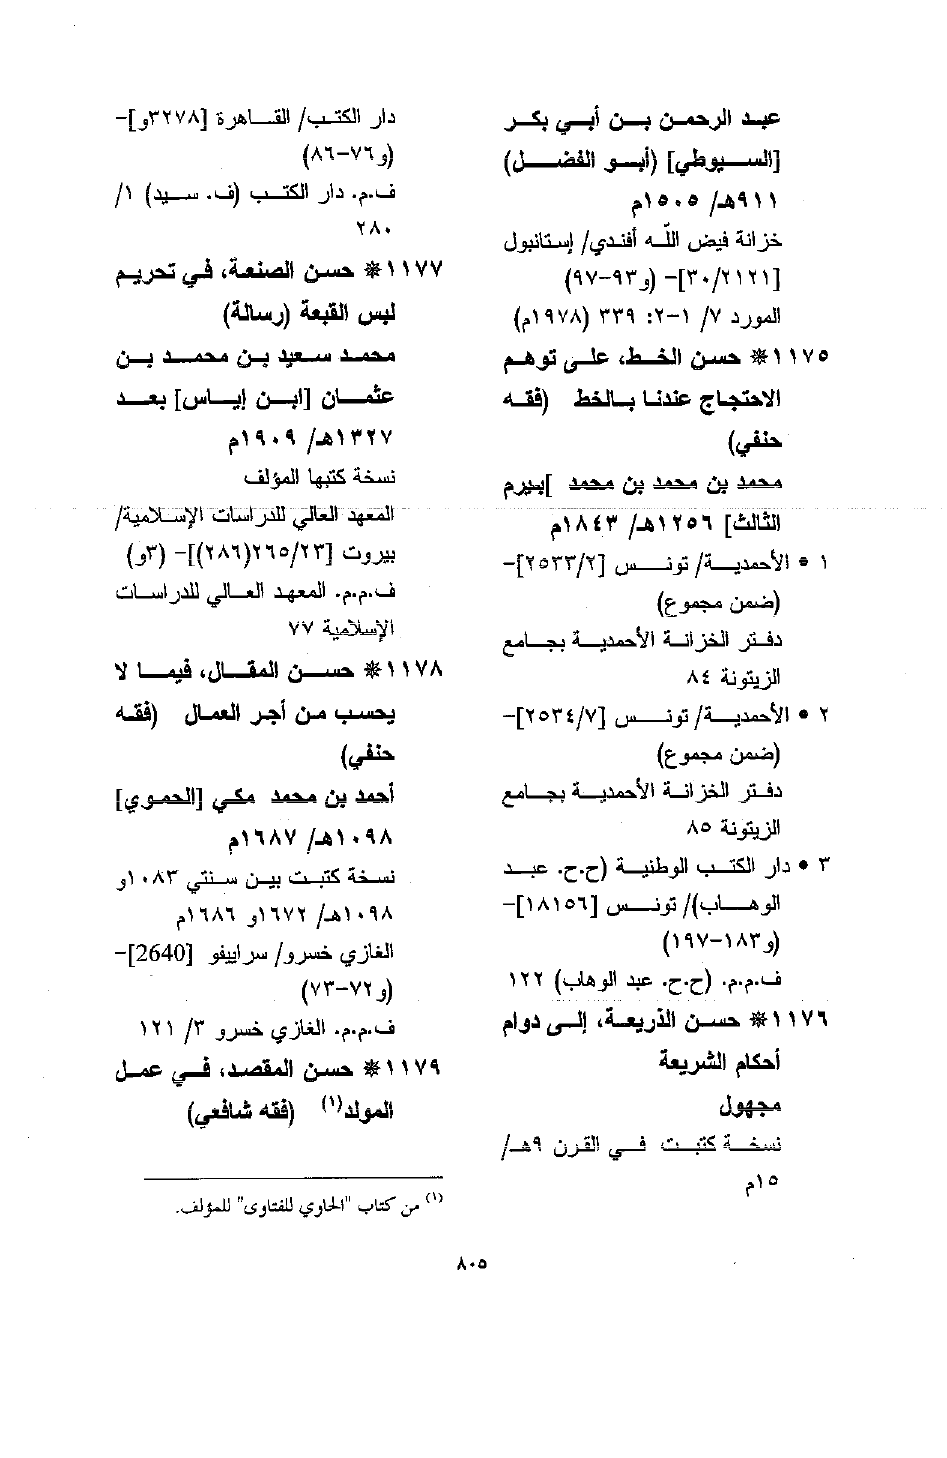 عبد الرحمن بن أبي بكر
[السيوطي] (أبو الفضل)
٩١١هـ/ ١٥٠٥م
خزانة فيض اللّه أفندي/ إستانبول
[٣٠/٢١٢١]- (و٩٣-٩٧)
المورد ٧/ ١-٢: ٣٣٩ (١٩٧٨م)
١١٧٥❊ حسن الخط، على توهم
الاحتجاج عندنا بالخط (فقه
حنفي)
محمد بن محمد بن محمد [بيرم
الثالث] ١٢٥٦هـ/ ١٨٤٣م
١ • الأحمدية/ تونس [٢٥٣٣/٢]-
(ضمن مجموع)
دفتر الخزانة الأحمدية بجامع
الزيتونة ٨٤
٢ • الأحمدية/ تونس [٢٥٣٤/٧]-
(ضمن مجموع)
دفتر الخزانة الأحمدية بجامع
الزيتونة ٨٥
٣ • دار الكتب الوطنية (ح.ح. عبد
الوهاب)/ تونس [١٨١٥٦]-
(و١٨٣-١٩٧)
ف.م.م. (ح.ح. عبد الوهاب) ١٢٢
١١٧٦❊ حسن الذريعة، إلى دوام
أحكام الشريعة
مجهول
نسخة كتبت في القرن ٩هـ/
١٥م
دار الكتب/ القاهرة [٣٢٧٨و]-
(و٧٦-٨٦)
ف.م. دار الكتب (ف. سيد) ١/
٢٨٠
١١٧٧❊ حسن الصنعة، في تحريم
لبس القبعة (رسالة)
محمد سعيد بن محمد بن
عثمان [ابن إياس] بعد
١٣٢٧هـ/ ١٩٠٩م
نسخة كتبها المؤلف
المعهد العالي للدراسات الإسلامية/
بيروت [٢٦٥/٢٣(٢٨٦)]- (٣و)
ف.م.م. المعهد العالي للدراسات
الإسلامية ٧٧
١١٧٨❊ حسن المقال، فيما لا
يحسب من أجر العمال (فقه
حنفي)
أحمد بن محمد مكي [الحموي]
١٠٩٨هـ/ ١٦٨٧م
نسخة كتبت بين سنتي ١٠٨٣و
١٠٩٨هـ/ ١٦٧٢و ١٦٨٦م
الغازي خسرو/ سراييفو [2640]-
(و٧٢-٧٣)
ف.م.م. الغازي خسرو ٣/ ١٢١
١١٧٩❊ حسن المقصد، في عمل
المولد(١) (فقه شافعي)
(١) من كتاب "الحاوي للفتاوى" للمؤلف.
٨٠٥